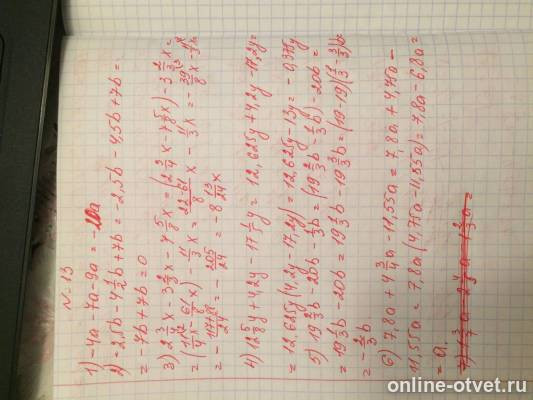 №13
1) -4a-7a-9a = -20a
2) -2,5b - 4 1/2 b + 7b = -2,5b - 4,5b + 7b =
= -7b + 7b = 0
3) 2 3/4 x - 3 2/3 x - 7 5/8 x = (2 3/4 x - 7 5/8 x) - 3 2/3 x =
= - 8 13/24 x
4) 12 5/8 y + 4,2y - 17 1/5 y = 12,625y + 4,2y - 17,2y =
= 12,625y (4,2y - 17,2y) = 12,625y - 13y = - 0,375y
5) 19 2/3 b - 20b - 1/3 b = (19 2/3 b - 1/3 b) - 20b =
= 19 1/3 b - 20b =
= - 2/3 b
6) 7,8a + 4 3/4 a - 11,55a = 7,8a + 4,75a -
11,55a = 7,8a (4,75a - 11,55a) = 7,8a - 6,8a =
= a.
online-otvet.ru